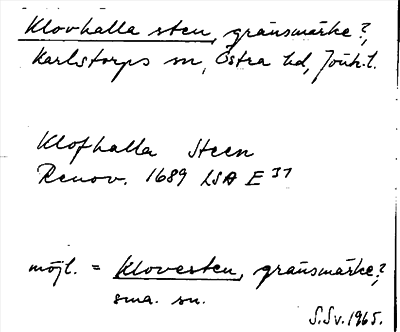 Klovhalla sten, gränsmärke?,
Karlstorps sn, Östra hd, Jönk.l.
Klofhalla Steen
Renov. 1689 LSA E 31
möjl. = Klovesten, gränsmärke?,
sma. sn.
S.Sv. 1965.